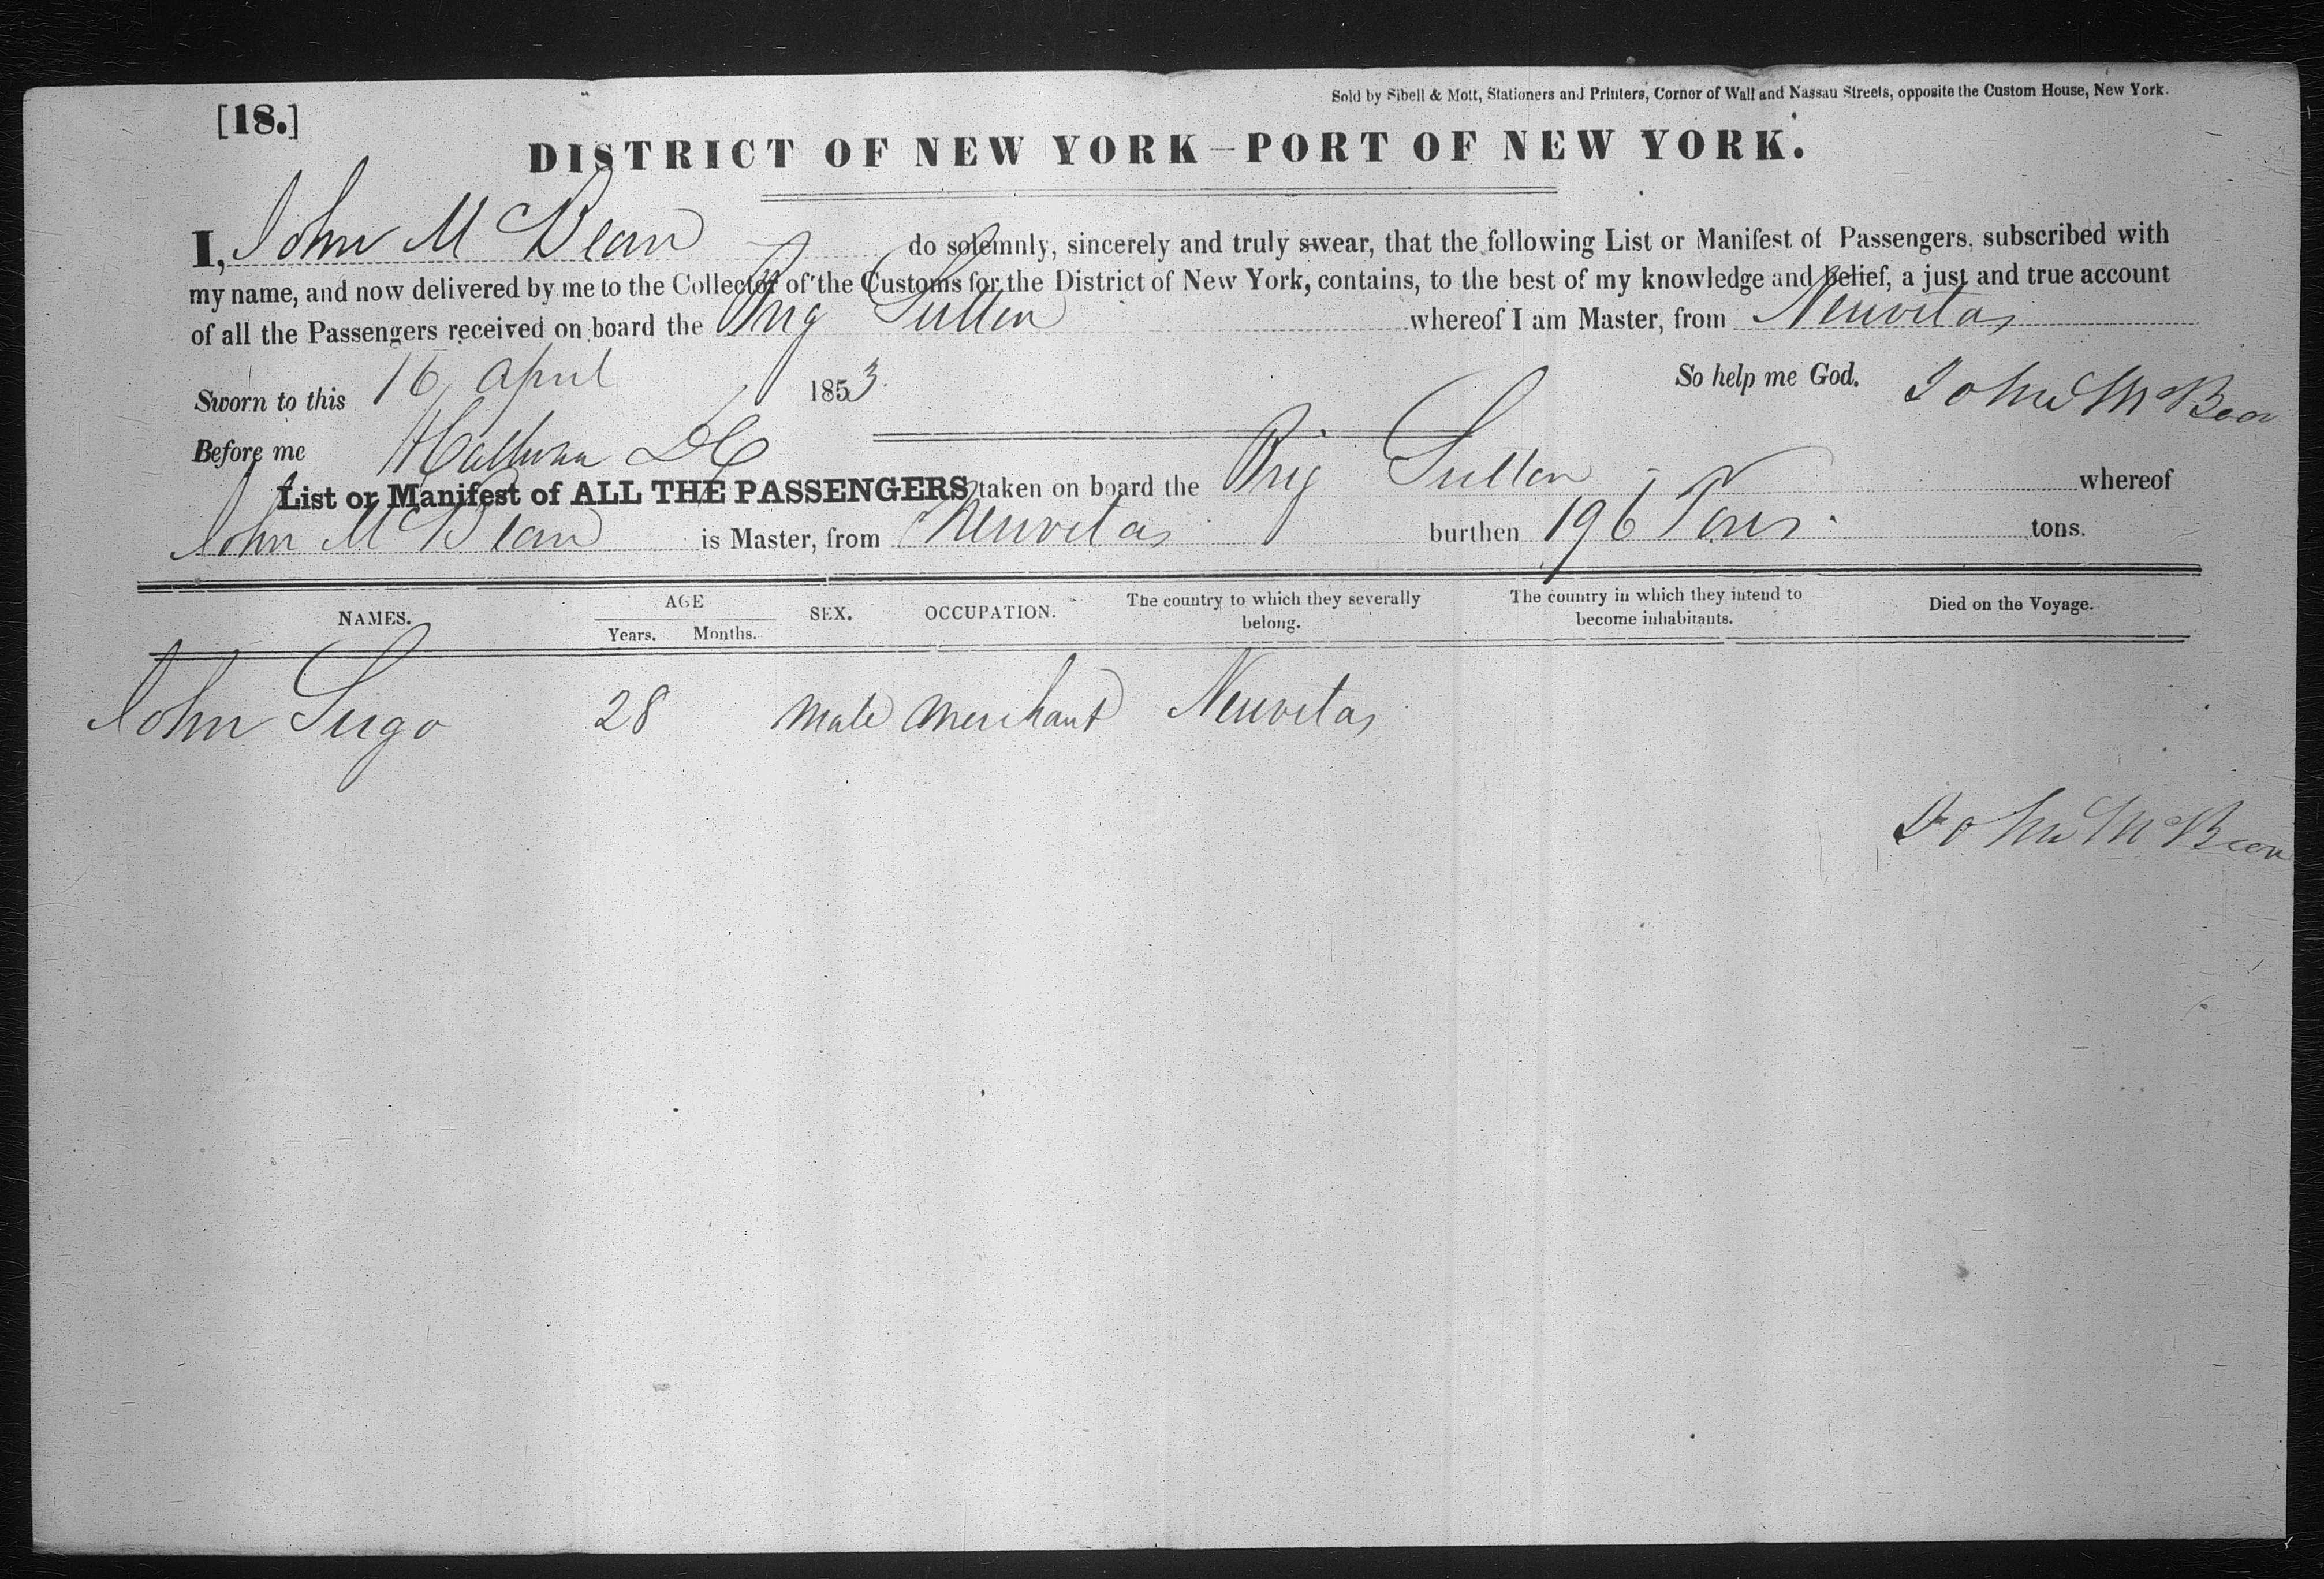 Sold by Sibell & Mott, Stationers and Printers, Corner of Wall and Nassau Streets, opposite the Custom House, New York.
[18.]
DISTRICT OF NEW YORK—PORT OF NEW YORK.
I, John McBean do solemnly, sincerely and truly swear, that the following List or Manifest of Passengers, subscribed with
my name, and now delivered by me to the Collector of the Customs for the District of New York, contains, to the best of my knowledge and belief, a just and true account
of all the Passengers received on board the Brig whereof I am Master, from Neuvitas
So help me God. John McBean
Sworn to this 16 April 1853
Before me
List or Manifest of ALL THE PASSENGERS taken on board the Brig whereof
John McBean is Master, from Neuvitas burthen 196 Tons tons.
NAMES. AGE Years. Months. SEX. OCCUPATION. The country to which they severally belong. The country in which they intend to become inhabitants. Died on the Voyage.
John 28 male merchant Neuvitas
John McBean